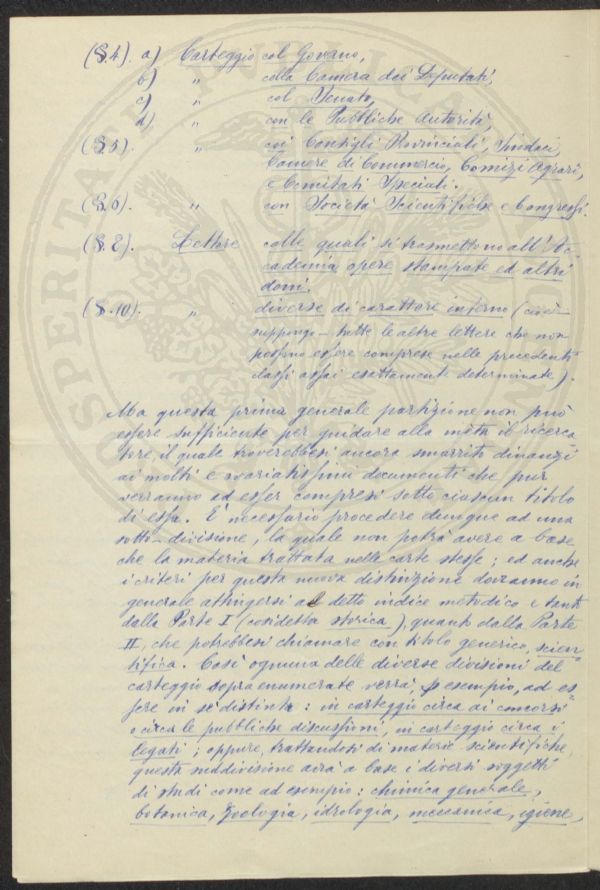 (§.4). a) Carteggio col Governo,
b) " colla Camera dei Deputati,
c) " col Senato,
d) " con le Pubbliche Autorità,
(§.5). " coi Consigli Provinciali, Sindaci,
Camere di Commercio, Comizi Agrari,
e Comitati Speciali.
(§.6). " con Società Scientifiche e Congressi.
(§.8). Lettere colle quali si trasmettono all'Ac=
cademia opere stampate ed altri
doni.
(§.10). " diverse di carattere interno (cioè
suppongo - tutte le altre lettere che non
possono essere comprese nelle precedenti
classi assai esattamente determinate).
Ma questa prima generale partizione non può
essere sufficiente per guidare alla mèta il ricerca
tore il quale troverebbesi ancora smarrito dinanzi
ai molti e svariatissimi documenti che pur
verranno ad esser compresi sotto ciascun titolo
di essa. È necessario procedere dunque ad una
sotto-divisione, la quale non potrà avere a base
che la materia trattata nelle carte stesse; ed anche
i criteri per questa nuova distinzione dovranno in
generale attingersi al detto indice metodico e tanto
dalla Parte I (cosidetta storica), quanto dalla Parte
II, che potrebbesi chiamare con titolo generico, scien=
tifica. Così ognuna delle diverse divisioni del
carteggio sopra enumerate verrà, p esempio, ad es=
sere in sè distinta: in carteggio circa ai concorsi
o circa le pubbliche discussioni, in carteggio circa i
legati; oppure, trattandosi di materie scientifiche,
questa suddivisione avrà a base i diversi soggetti
di studi come ad esempio: chimica generale,
botanica, zoologia, idrologia, meccanica, igiene,